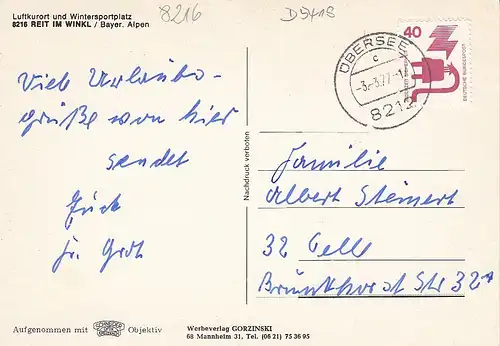 Luftkurort und Wintersportplatz
8216 REIT IM WINKL / Bayer. Alpen
8216
D5418
ÜBERSEE
c
-3.-3.77-1
8212
40
DEUTSCHE BUNDESPOST
Viele Urlaubs-
grüße von hier
sendet
Fr. Grot
Nachdruck verboten
Familie
Albert Steinert
32 Celle
Brunkhorst Str 32
Aufgenommen mit
Objektiv
Werbeverlag GORZINSKI
68 Mannheim 31, Tel. (06 21) 75 36 95